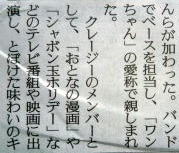 んらが加わった。バンド
でベースを担当し、「ワン
ちゃん」の愛称で親しまれ
た。
クレージーのメンバーと
して、「おとなの漫画」や
「シャボン玉ホリデー」な
どのテレビ番組や映画に出
演し、とぼけた味わいのキ